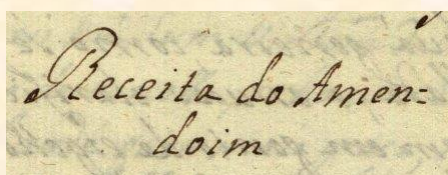 Receita do Amen=
doim